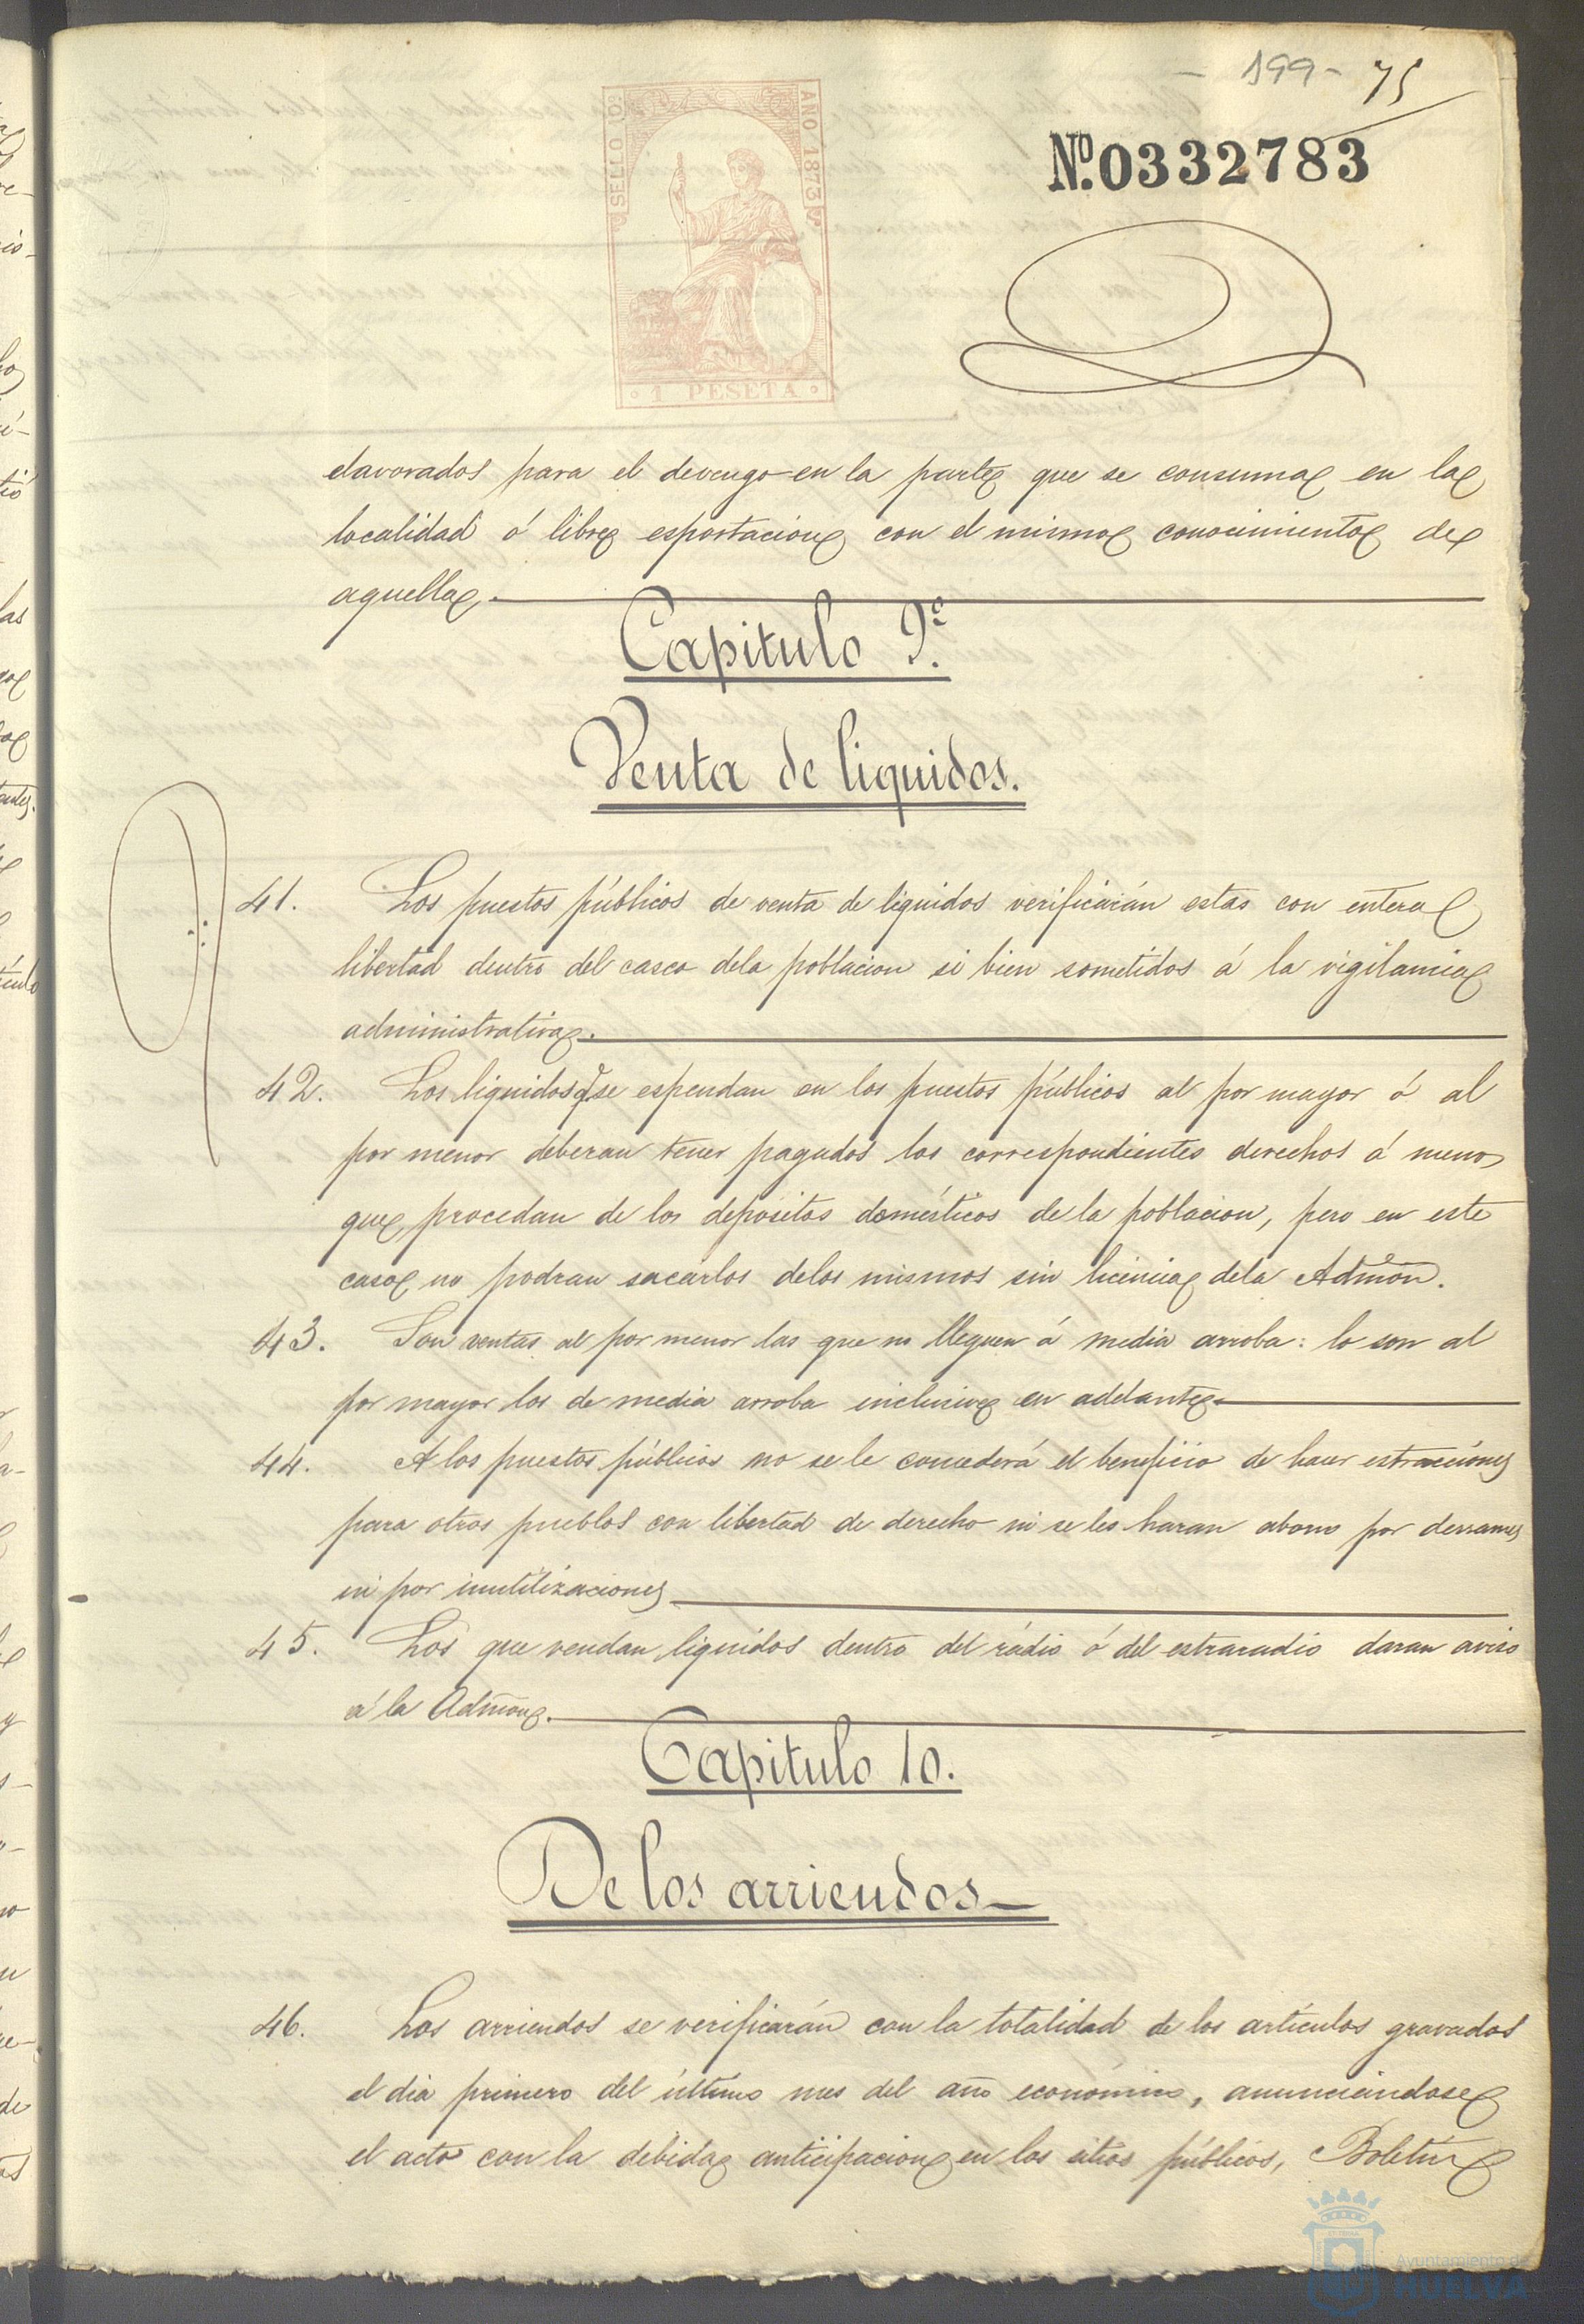 - 199 - 75
SELLO 10º
AÑO 1873
Nº. 0332783
1 PESETA
elavorados para el devengo en la parte que se consuma en la
localidad ó libre esportacion con el mismo conocimiento de
aquella.
Capitulo 9º.
Venta de liquidos.
41. Los puestos públicos de venta de liquidos verificarán estas con entera
libertad dentro del casco dela poblacion si bien sometidos á la vigilancia
administrativa.
42. Los liquidos q se espendan en los puestos públicos al por mayor ó al
por menor deberan tener pagados los correspondientes derechos á menos
que procedan de los depositos domésticos de la poblacion, pero en este
caso no podran sacarlos delos mismos sin licencia dela Admon.
43. Son ventas al por menor las que no lleguen á media arroba: lo son al
por mayor los de media arroba inclusive en adelante.
44. A los puestos públicos no se le concederá el beneficio de hacer estracciones
para otros pueblos con libertad de derecho ni se les haran abono por derrames
ni por inutilizaciones
45. Los que vendan liquidos dentro del rádio ó del estraradio daran aviso
á la Admon.
Capitulo 10.
De los arriendos
46. Los arriendos se verificarán con la totalidad de los artículos gravados
el dia primero del último mes del año económico, anunciandose
el acto con la debida anticipacion en los sitios públicos, Boletin
Ayuntamiento de
HUELVA